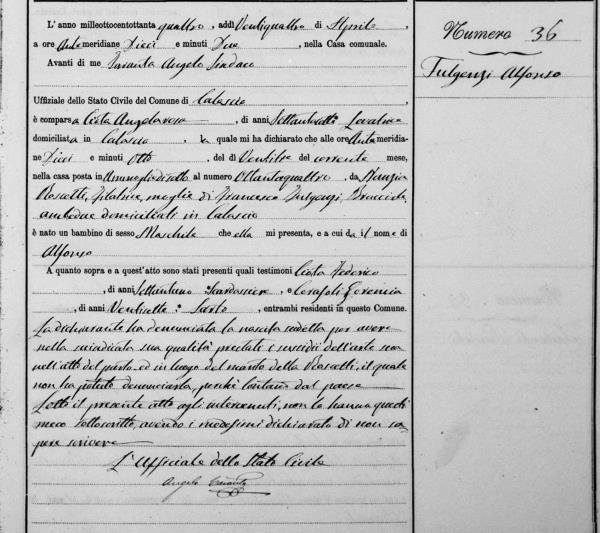 L'anno milleottocentottanta quattro, addì Ventiquattro di Aprile,
a ore Antemeridiane Dieci e minuti Due, nella Casa comunale.
Avanti di me Taranta Angelo Sindaco
Uffiziale dello Stato Civile del Comune di Calascio
è comparsa Ciota Angelarosa, di anni Settantasette Levatrice
domiciliata in Calascio, la quale mi ha dichiarato che alle ore Antemeridia-
ne Dieci e minuti Otto, del dì Ventitre del corrente mese,
nella casa posta in al numero Ottantaquattro, da Nunzia
Rossetti, Filatrice, moglie di Francesco Fulgenzi Bracciale,
ambedue domiciliati in Calascio
è nato un bambino di sesso Maschile che ella mi presenta, e a cui da il nome di
Alfonso
A quanto sopra e a quest'atto sono stati presenti quali testimoni Ciota Federico
, di anni Settantuno Scardassiere, e
, di anni Ventisette Sarto, entrambi residenti in questo Comune.
La dichiarante ha denunciata la nascita suddetta per avere
nella sua qualità prestati i sussidii dell'arte sua
nell'atto del parto, ed in luogo del marito della Rossetti, il quale
non ha potuto denunciarla, perchè lontano dal paese
Letto il presente atto agli intervenuti, non lo hanno questi
meco sottoscritto, avendo i medesimi dichiarato di non sa-
pere scrivere
L'Uffiziale dello Stato Civile
Angelo Taranta
Numero 36
Fulgenzi Alfonso